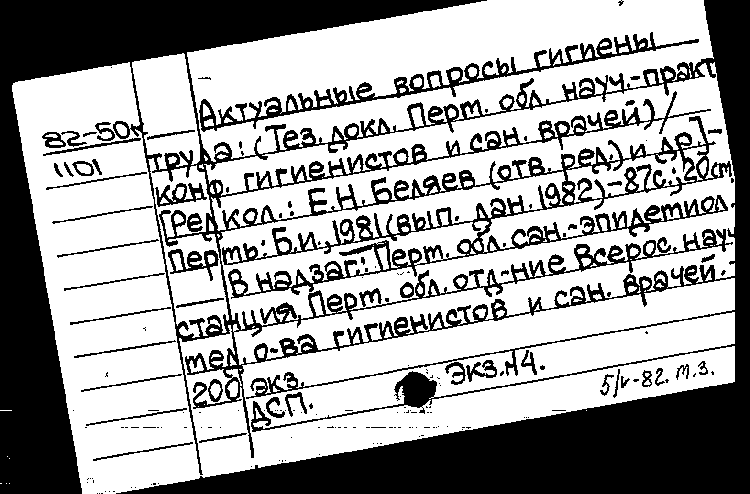 Актуальные вопросы гигиены
82-50к труда: (Тез. докл. Перм. обл. науч.-практ
1101 конф. гигиенистов и сан. врачей) /
[Редкол.: Е.Н. Беляев (отв. ред.) и др.]-
Пермь: Б.и., 1981 (вып. дан. 1982)-87с.; 20см
В надзаг.: Перм. обл. сан.-эпидемиол.
станция, Перм. обл. отд-ние Всерос. науч
мед. о-ва гигиенистов и сан. врачей.-
200 экз.
ДСП. Экз.N4.
5/V-82. м.з.